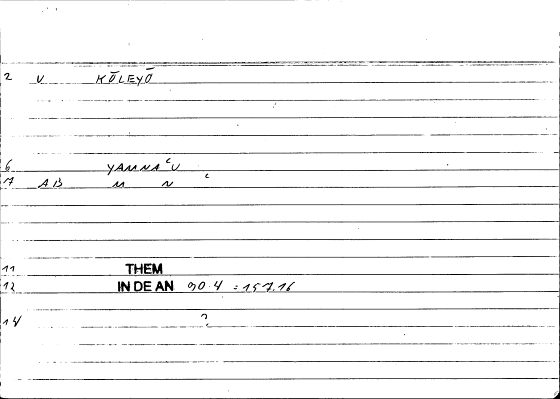 2 V KŌLEYŌ
6 YAMNAʿU
17 AB M N ʿ
11 THEM
12 IN DE AN 90.4 = 157.16
14 ?